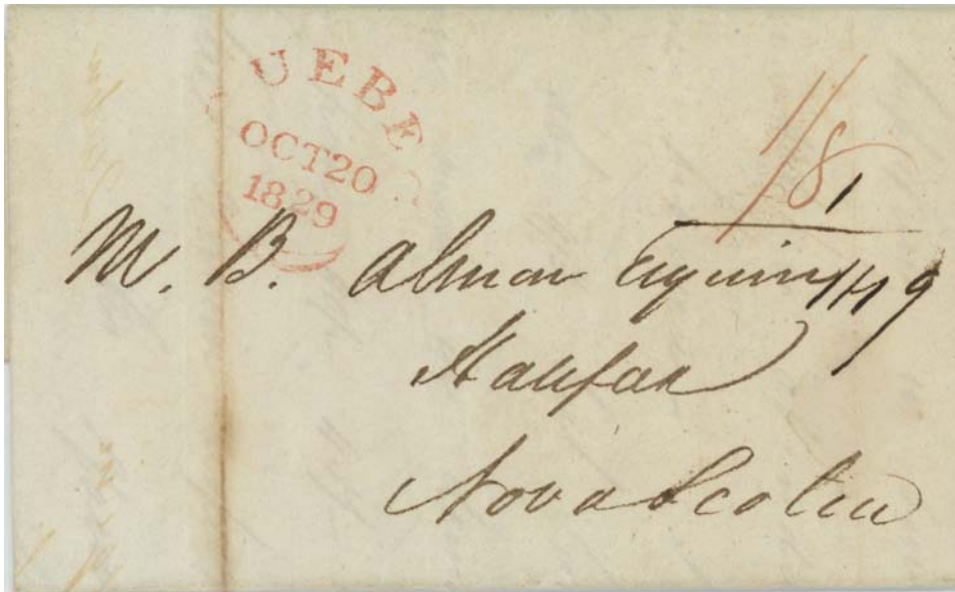 UEBE
OCT 20
1829
1/8
1
M. B. Almon Esquire
Halifax
Nova Scotia